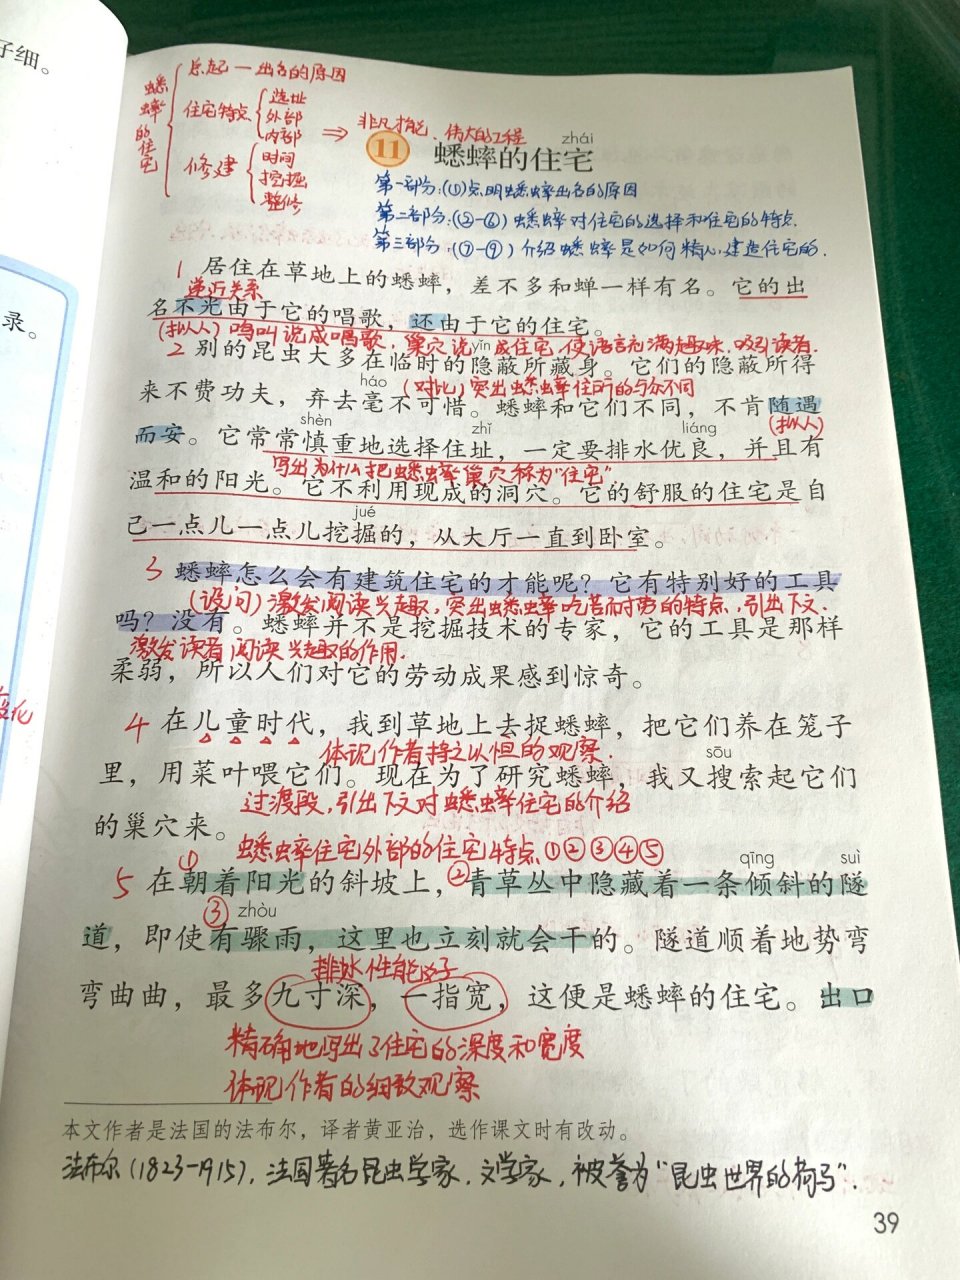 仔细。
录。
蟋蟀的住宅
总起—出名的原因
住宅特点
选址
外部
内部
修建
时间
挖掘
整修
⇒ 非凡才能、伟大的工程
zhái
11 蟋蟀的住宅
第一部分:(1)点明蟋蟀出名的原因
第二部分:(2-6)蟋蟀对住宅的选择和住宅的特点.
第三部分:(7-9)介绍蟋蟀是如何精心建造住宅的.
1 居住在草地上的蟋蟀，差不多和蝉一样有名。它的出
递近关系
名不光由于它的唱歌，还由于它的住宅。
(拟人)鸣叫说成唱歌，巢穴说成住宅,使语言充满趣味,吸引读者.
yǐn
2 别的昆虫大多在临时的隐蔽所藏身。它们的隐蔽所得
háo
(对比)突出蟋蟀住所的与众不同
来不费功夫，弃去毫不可惜。蟋蟀和它们不同，不肯随遇
shèn zhǐ liáng (拟人)
而安。它常常慎重地选择住址，一定要排水优良，并且有
写出为什么把蟋蟀巢穴称为“住宅”
温和的阳光。它不利用现成的洞穴。它的舒服的住宅是自
jué
己一点儿一点儿挖掘的，从大厅一直到卧室。
3 蟋蟀怎么会有建筑住宅的才能呢？它有特别好的工具
(设问)激发阅读兴趣,突出蟋蟀吃苦耐劳的特点,引出下文.
吗？没有。蟋蟀并不是挖掘技术的专家，它的工具是那样
激发读者阅读兴趣的作用.
柔弱，所以人们对它的劳动成果感到惊奇。
4 在儿童时代，我到草地上去捉蟋蟀，把它们养在笼子
体现作者持之以恒的观察.
sōu
里，用菜叶喂它们。现在为了研究蟋蟀，我又搜索起它们
过渡段,引出下文对蟋蟀住宅的介绍
的巢穴来。
蟋蟀住宅外部的住宅特点①②③④⑤
qīng suì
5 在①朝着阳光的斜坡上，②青草丛中隐藏着一条倾斜的隧
③ zhòu
道，即使有骤雨，这里也立刻就会干的。隧道顺着地势弯
排水性能好
弯曲曲，最多九寸深，一指宽，这便是蟋蟀的住宅。出口
精确地写出了住宅的深度和宽度
体现作者的细致观察
本文作者是法国的法布尔，译者黄亚治，选作课文时有改动。
法布尔(1823-1915),法国著名昆虫学家、文学家,被誉为“昆虫世界的荷马”.
39